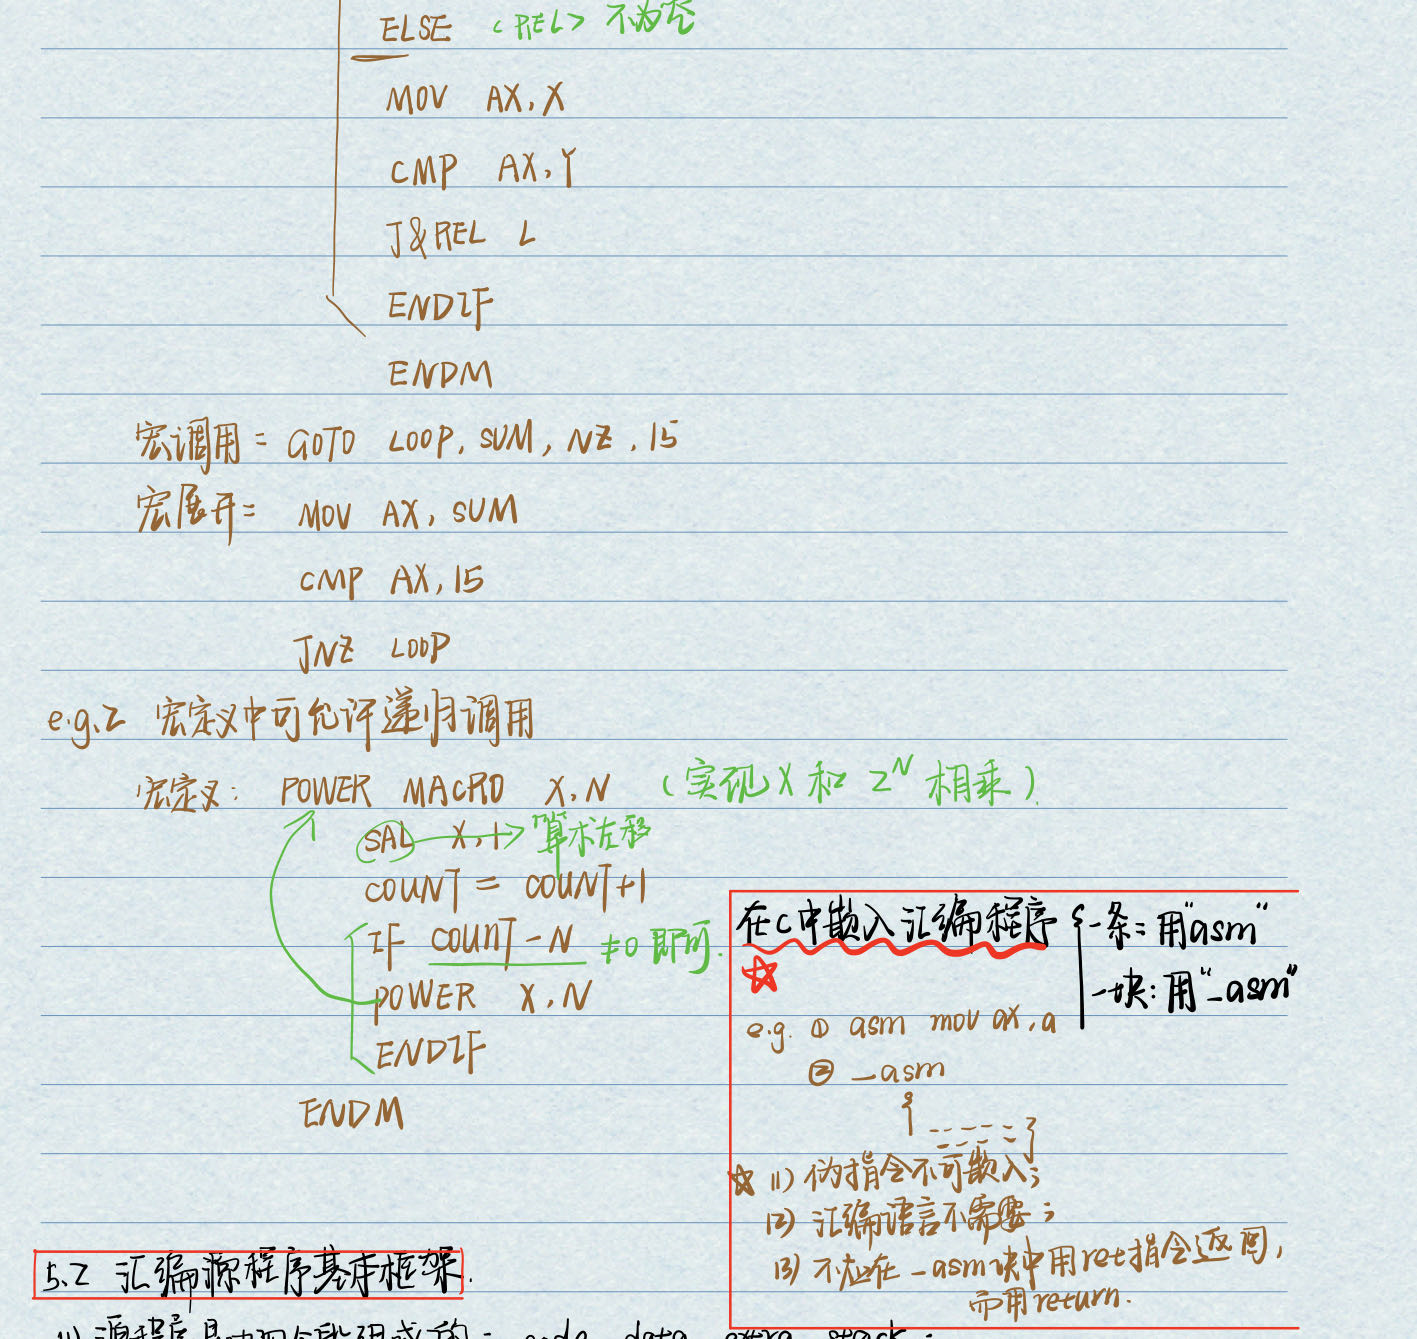 ELSE (REL> 不为空
MOV AX, X
CMP AX, Y
J&REL L
ENDIF
ENDM
宏调用= GOTO LOOP, SUM, NZ, 15
宏展开= MOV AX, SUM
CMP AX, 15
JNZ LOOP
e.g.2 宏定义中可允许递归调用
宏定义: POWER MACRO X, N (实现X和2^N相乘).
SAL X, 1 → 算术左移
COUNT = COUNT+1
IF COUNT-N ≠0即可.
POWER X, N
ENDIF
ENDM
在C中嵌入汇编程序 { 一条: 用"asm"
一块: 用"_asm"
e.g. ① asm mov ax, a
② _asm
{ ------
------ }
☆ (1) 伪指令不可嵌入;
(2) 汇编语言不需要;
(3) 不应在_asm块中用ret指令返回,
而用return.
5.2 汇编源程序基本框架.
(1) 源程序是由四个段组成的: code data extra stack;